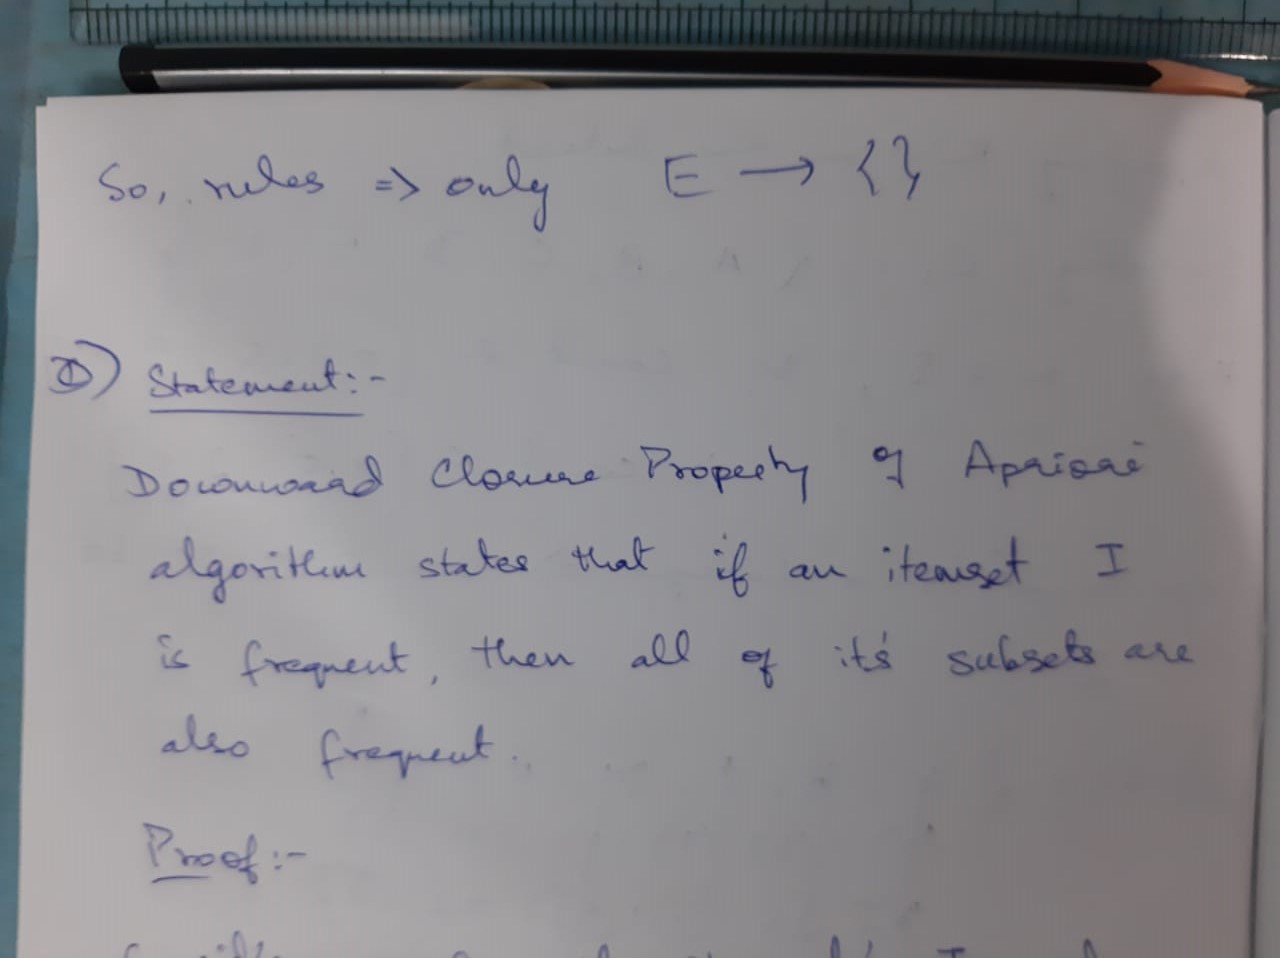 So, rules => only E → { }
①) Statement:-
Downward Closure Property of Apriori
algorithm states that if an itemset I
is frequent, then all of it's subsets are
also frequent.
Proof:-